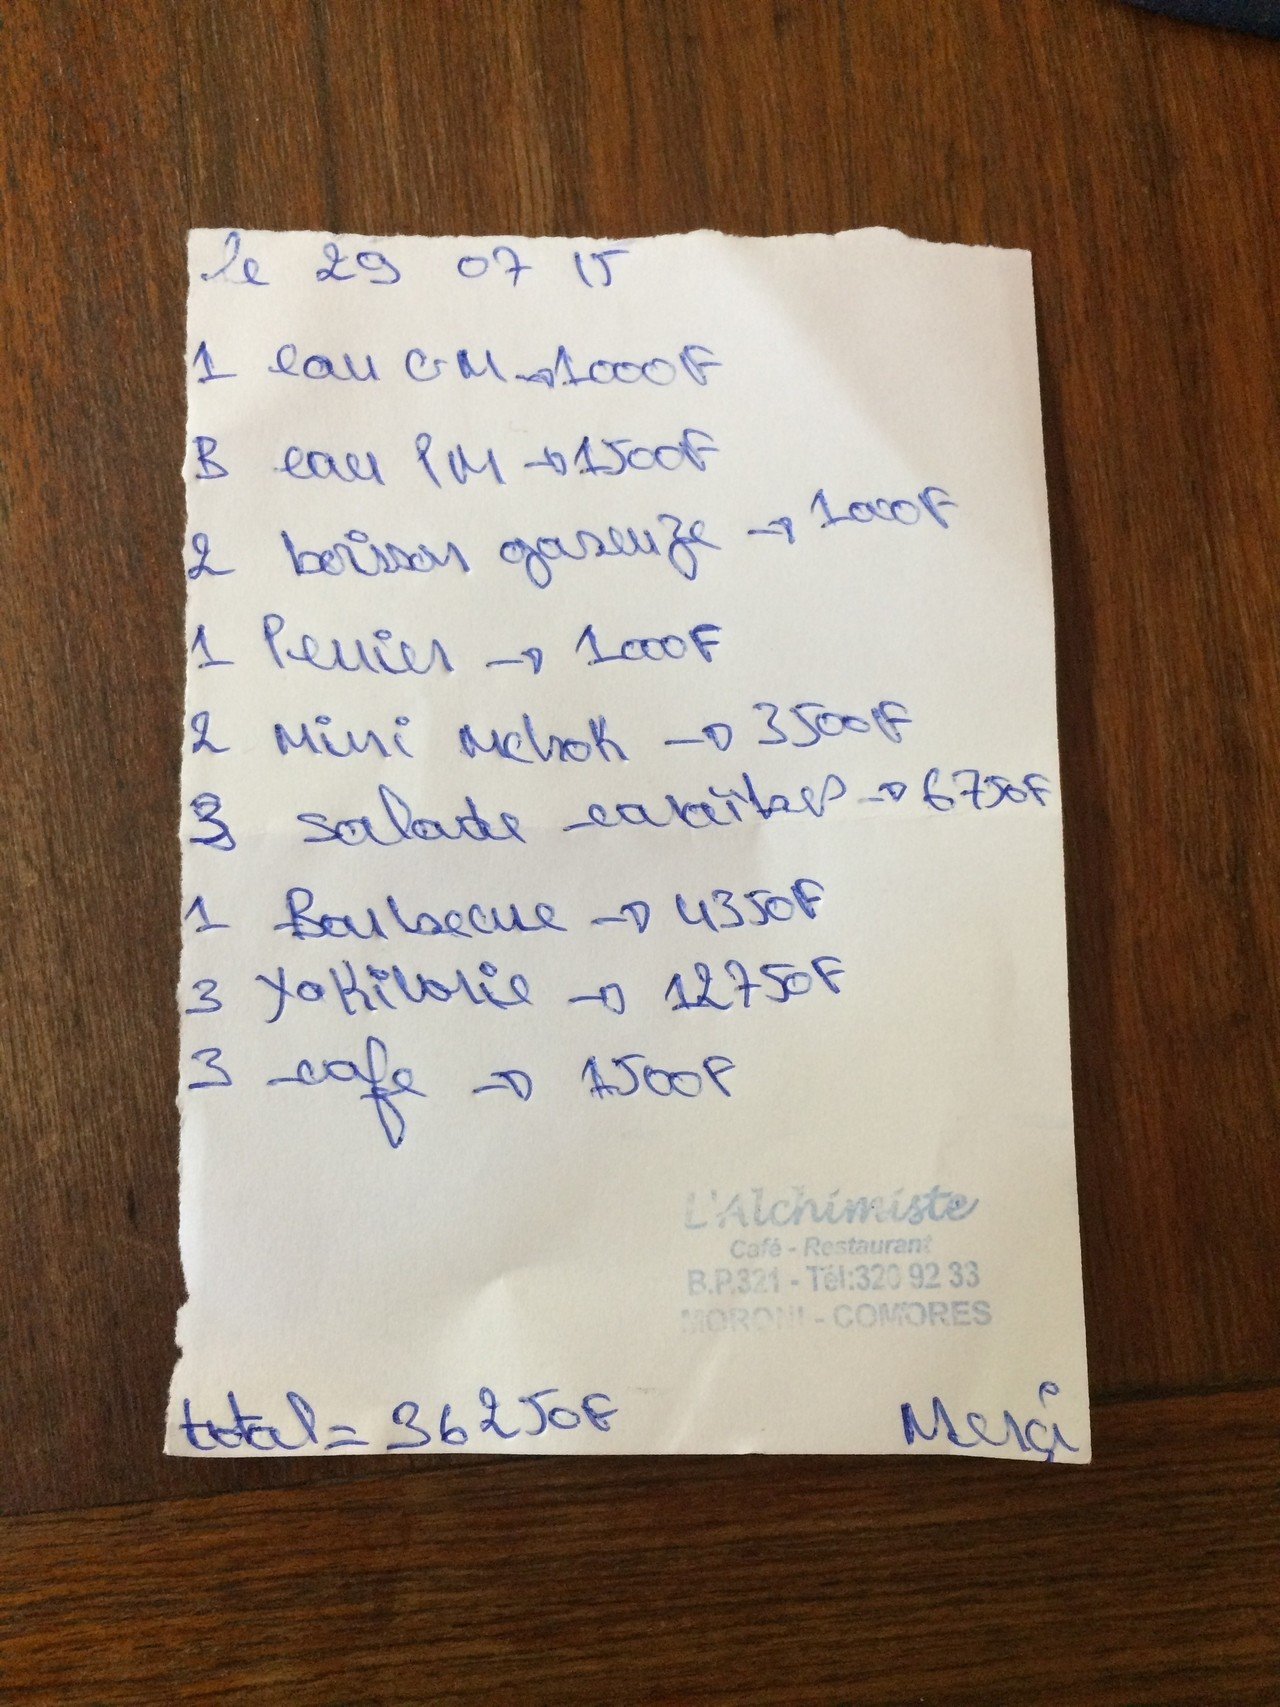 le 29 07 15
1 eau GM → 1000F
3 eau PM → 1500F
2 boisson gazeuze → 1000F
1 Perrier → 1000F
2 Mini → 3500F
3 salade caraïbes → 6750F
1 Barbecue → 4350F
3 Yakitorie → 12750F
3 cafe → 1500F
L'Alchimiste
Café - Restaurant
B.P.321 - Tél:320 92 33
MORONI - COMORES
total = 36250F Merçi